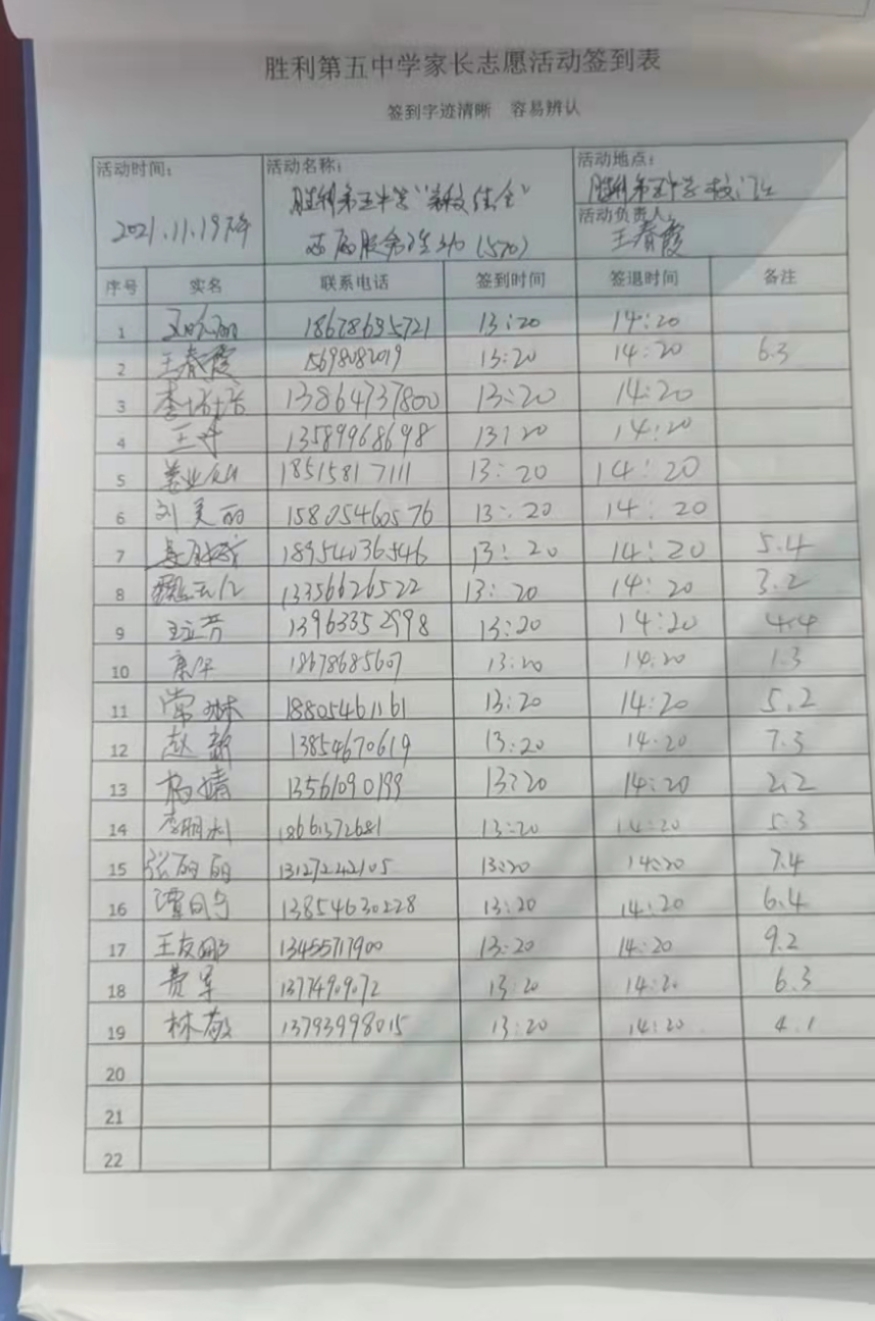 胜利第五中学家长志愿活动签到表
签到字迹清晰 容易辨认
活动时间: 活动名称: 活动地点:
2021.11.19下午 胜利第五中学"家校 胜利第五中学校门口
活动负责人:
志愿服务活动(570) 王春霞
序号 实名 联系电话 签到时间 签退时间 备注
1 18678695721 13:20 14:20
2 王春霞 15698082019 13:20 14:20 6.3
3 李 13864737800 13:20 14:20
4 王 13589968698 13:20 14:20
5 姜业 18515817111 13:20 14:20
6 刘美丽 15805460576 13:20 14:20
7 18954036546 13:20 14:20 5.4
8 13356626522 13:20 14:20 3.2
9 13963352998 13:20 14:20 4.4
10 18678685607 13:20 14:20 1.3
11 常琳 18805461161 13:20 14:20 5.2
12 赵新 13854670619 13:20 14:20 7.3
13 杨婧 13561090199 13:20 14:20 2.2
14 李丽利 18661372681 13:20 14:20 5.3
15 张丽丽 13127242105 13:20 14:20 7.4
16 谭 13854630228 13:20 14:20 6.4
17 王友娜 13455717900 13:20 14:20 9.2
18 费军 13:20 14:20 6.3
19 林敏 13793998015 13:20 14:20 4.1
20
21
22